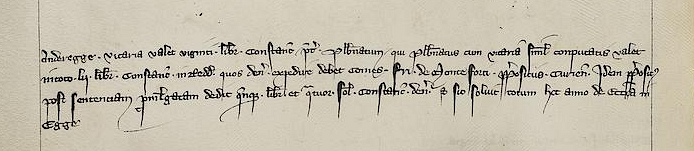 Anderegge . vicaria valet viginti . libr . Constanc̄ . p̄t . Plb̄natum qui Plb̄natus cum vicaria simul computatis valet
in toto . lij . libr . Constanc̄ . in redd . quos den̄ . expedire debet Comes . Fri . de Moncefforti . p̄positus . Curien̄ . Idem p̄positus
post sentenciam p̄mlgatam dedit q̄nq . libr . et q̄tuor . sol . Constanc̄ . den̄ . et sic solvit totum hoc anno de ecc̄a in
Egge